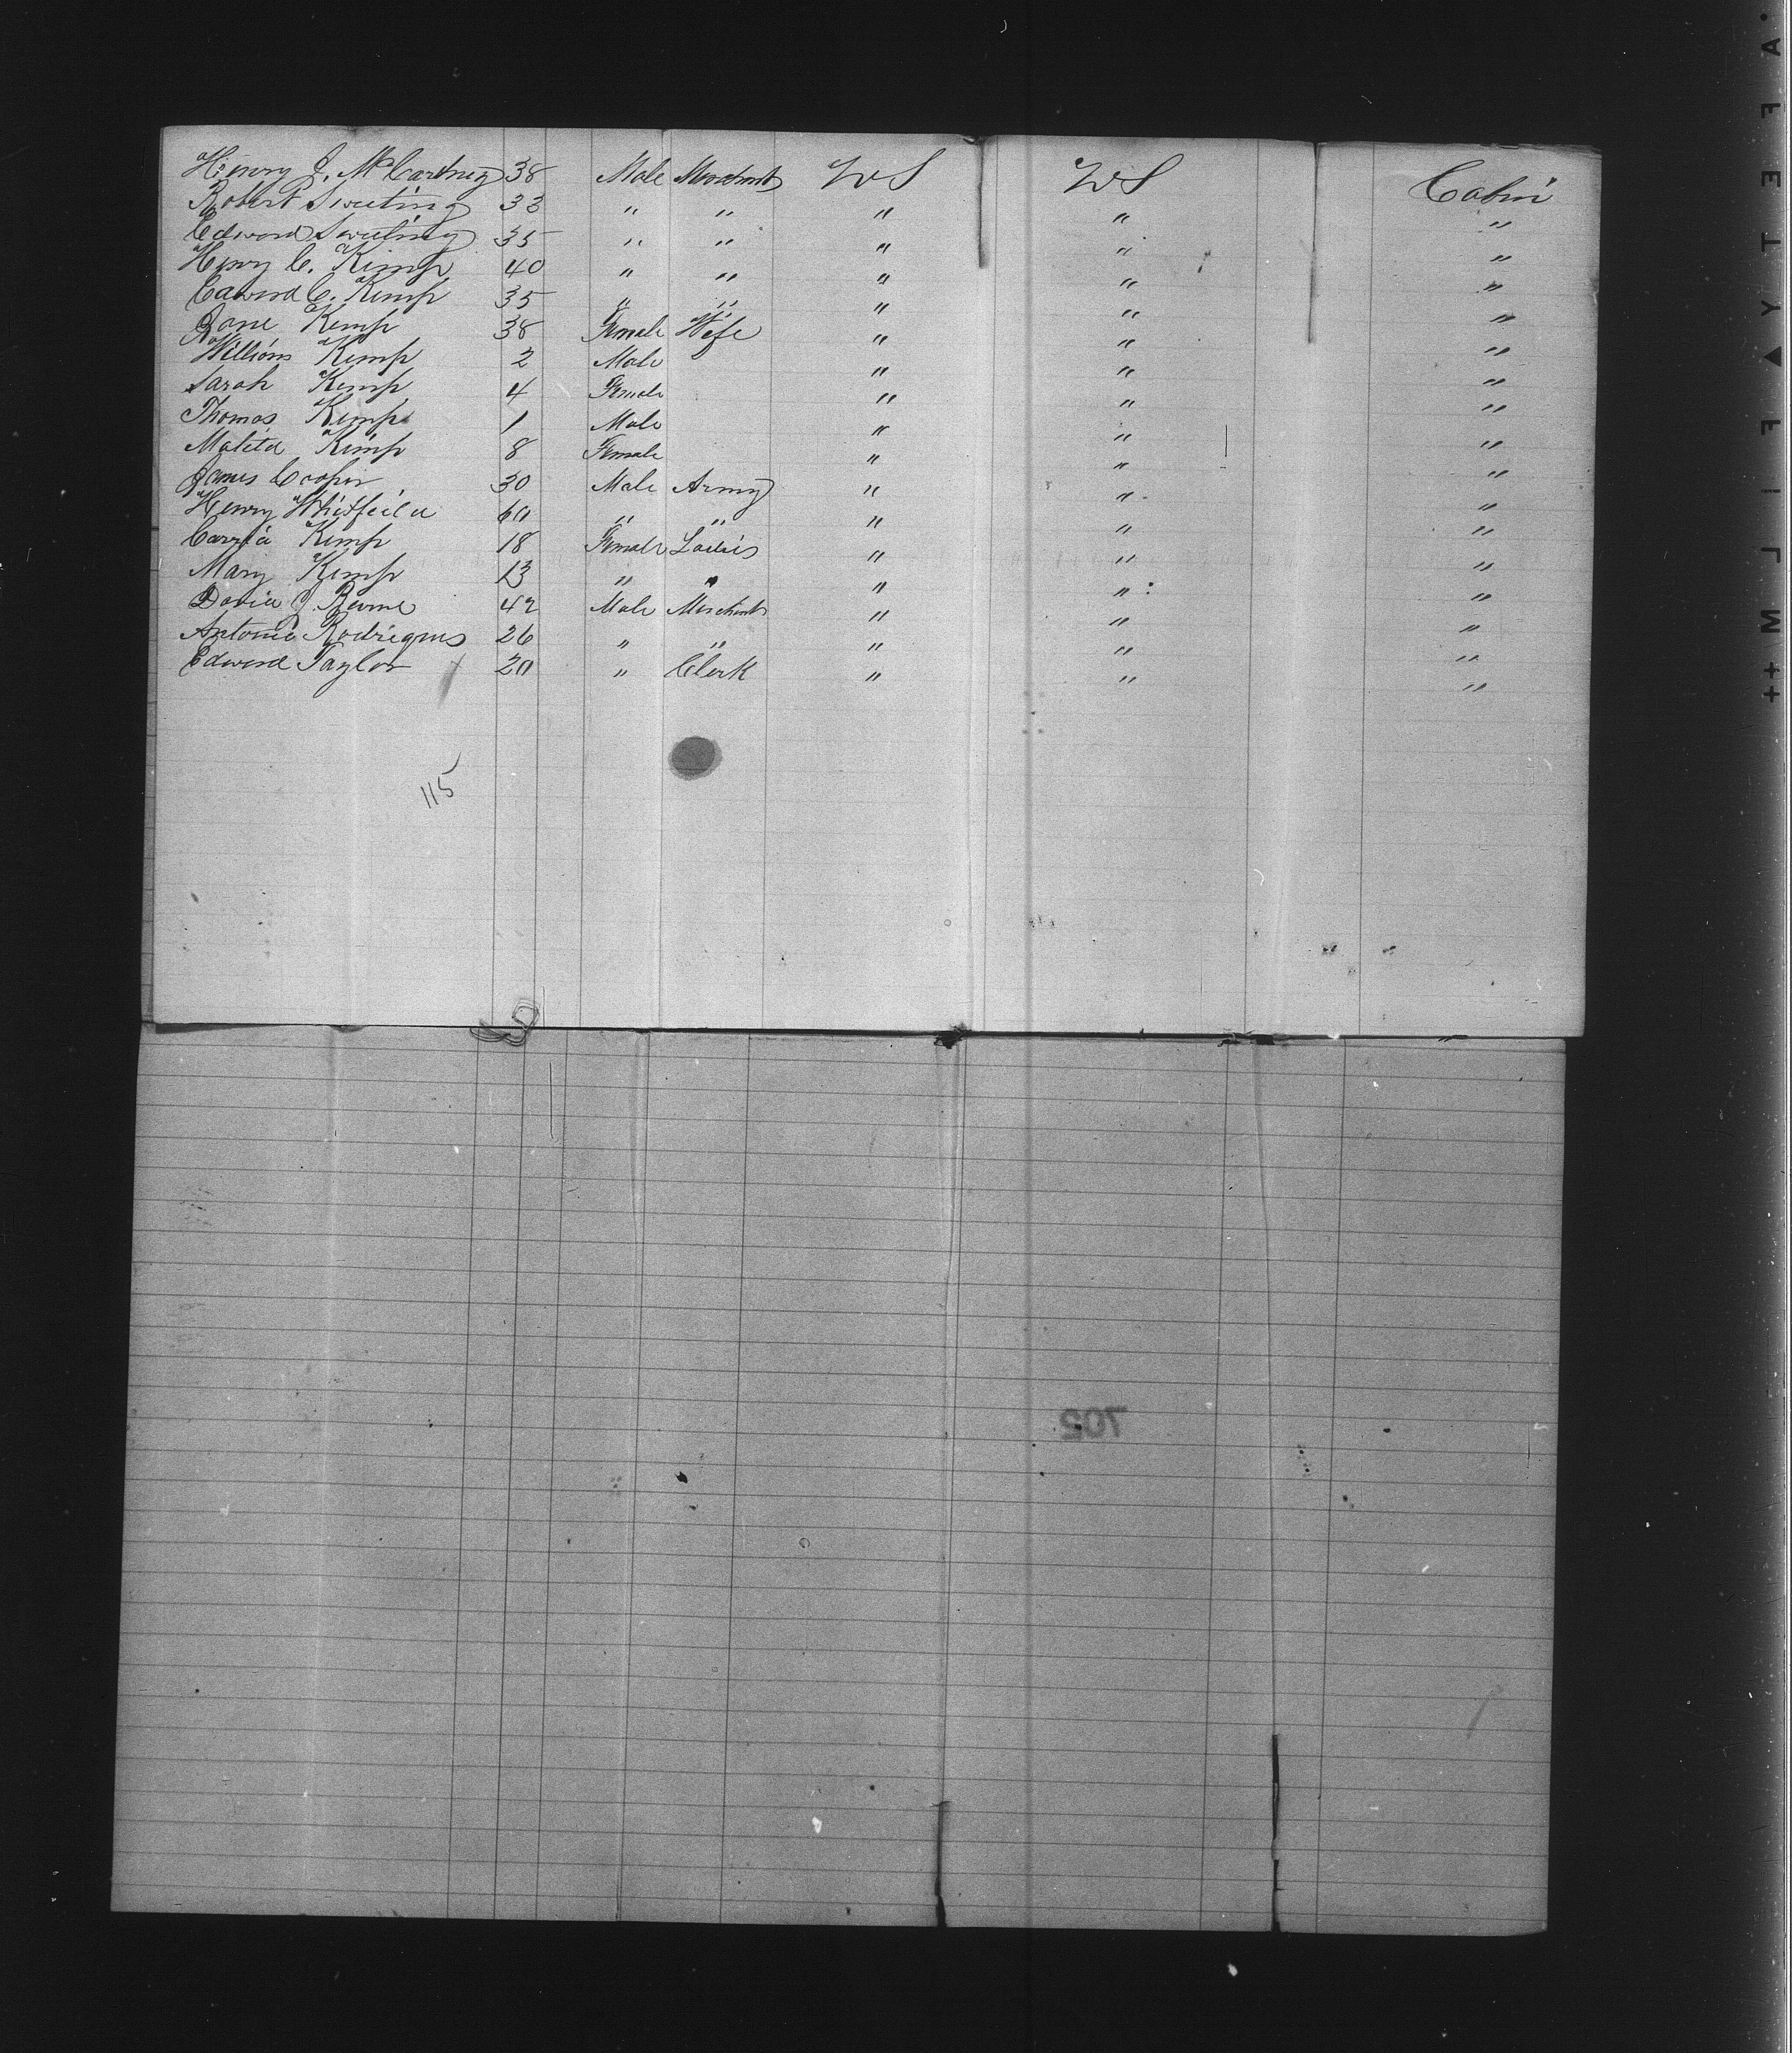 Henry J. McCartney 38 Male Merchant US US Cabin
Robert Sweeting 33 " " " " "
Edward Sweeting 35 " " " " "
Henry C. Kemp 40 " " " " "
Edward C. Kemp 35 " " " " "
Jane Kemp 38 Female Wife " " "
William Kemp 2 Male " " "
Sarah Kemp 4 Female " " "
Thomas Kemp 1 Male " " "
Matilda Kemp 8 Female " " "
James Cooper 30 Male Army " " "
Henry Whitfield 60 " " " " "
Carria Kemp 18 Female Ladies " " "
Mary Kemp 13 " " " " "
David J. 42 Male Merchant " " "
Antonio Rodriegues 26 " " " " "
Edward Taylor 20 " Clerk " " "
115
702